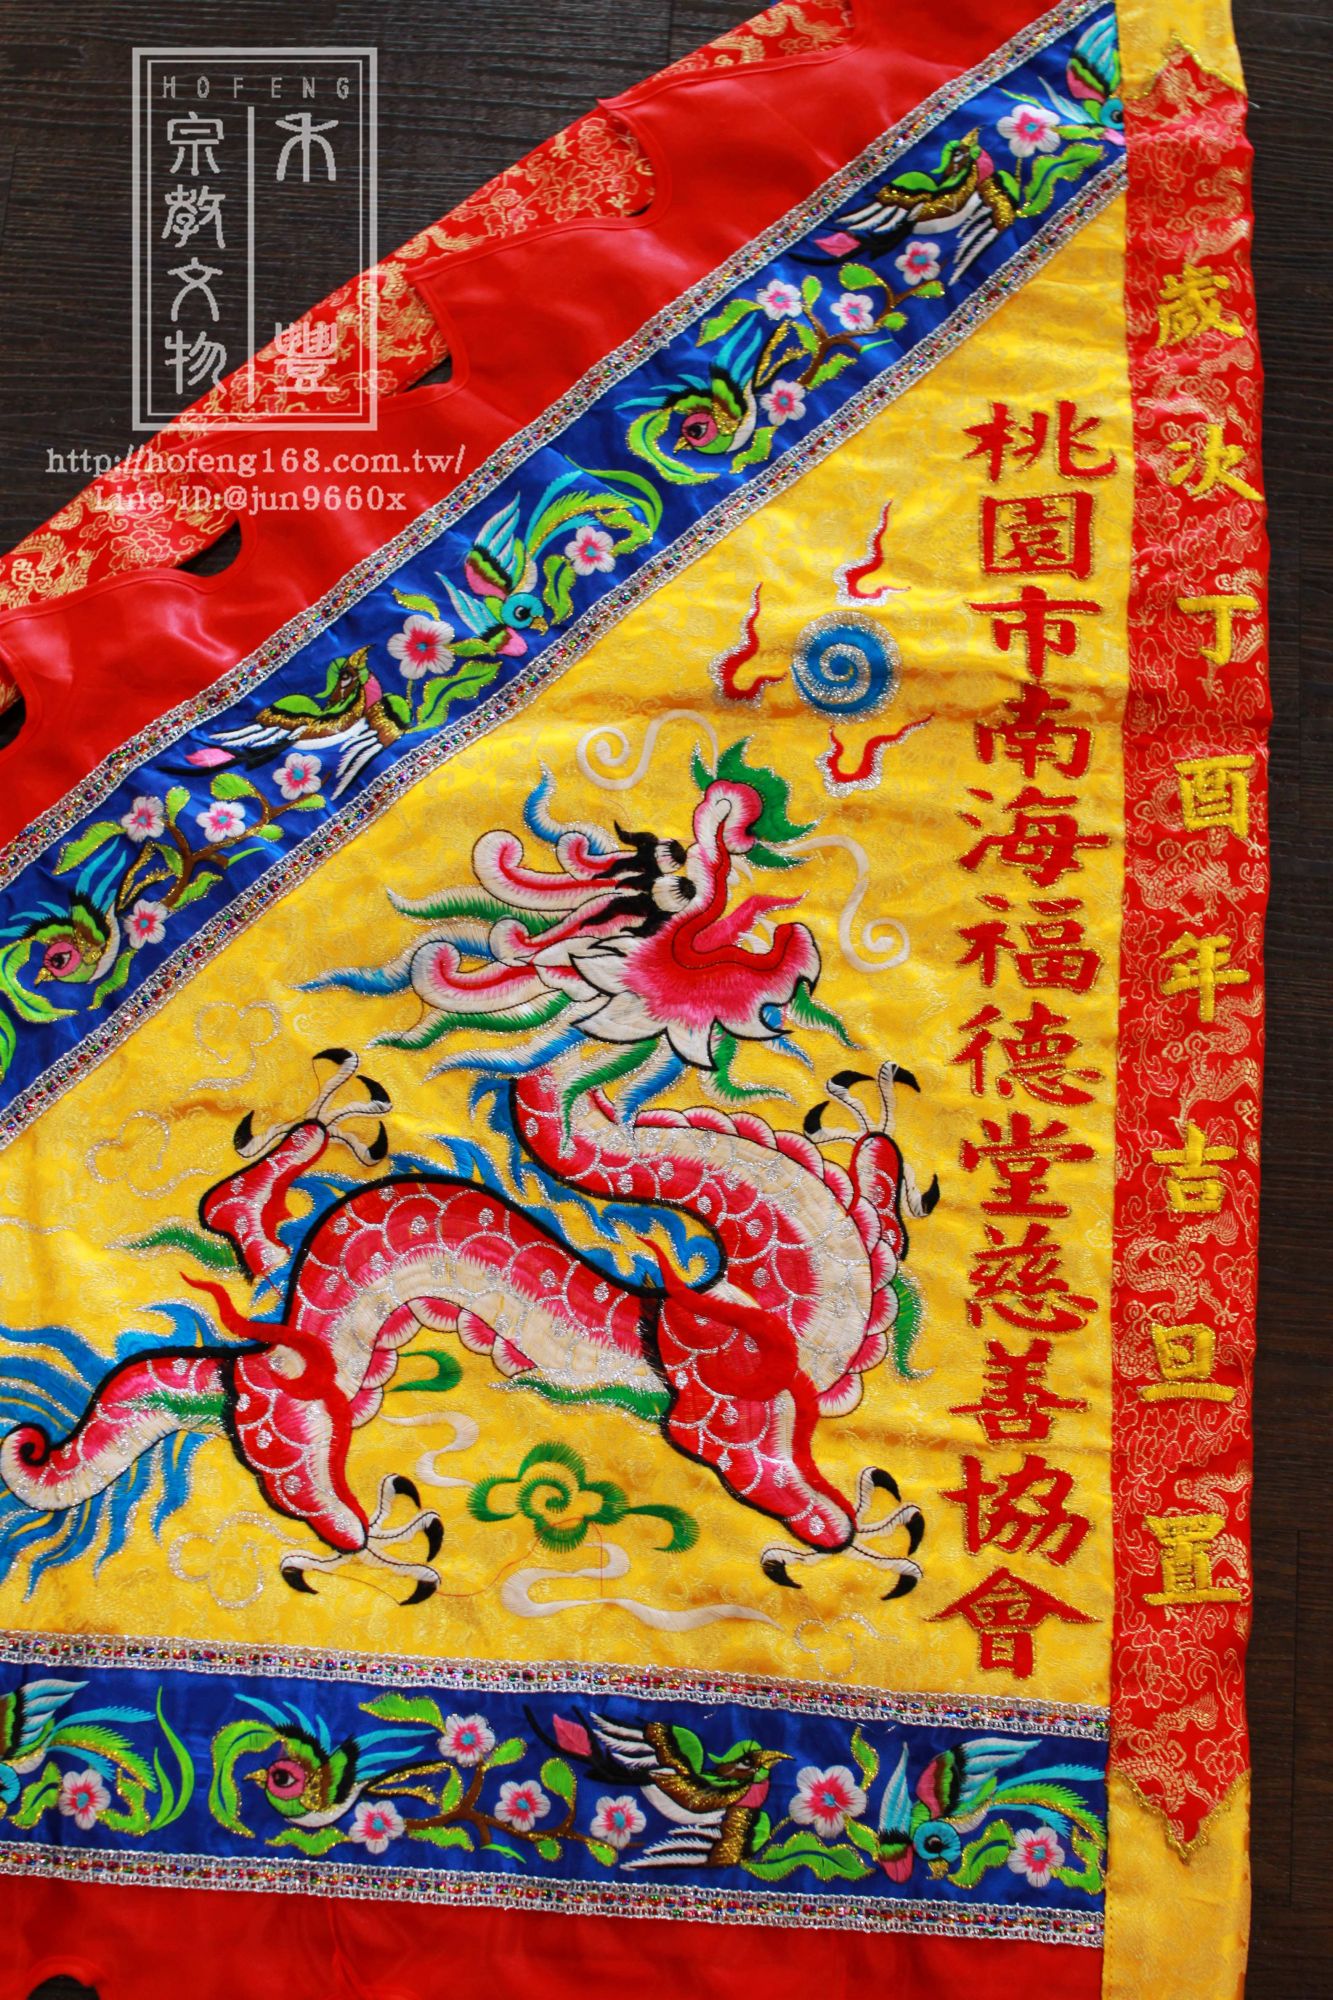 HOFENG
禾豐
宗教文物
http://hofeng168.com.tw/
Line-ID:@jun9660x
歲次丁酉年吉旦置
桃園市南海福德堂慈善協會